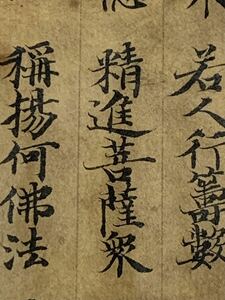 若人行籌數
精進菩薩衆
稱揚何佛法